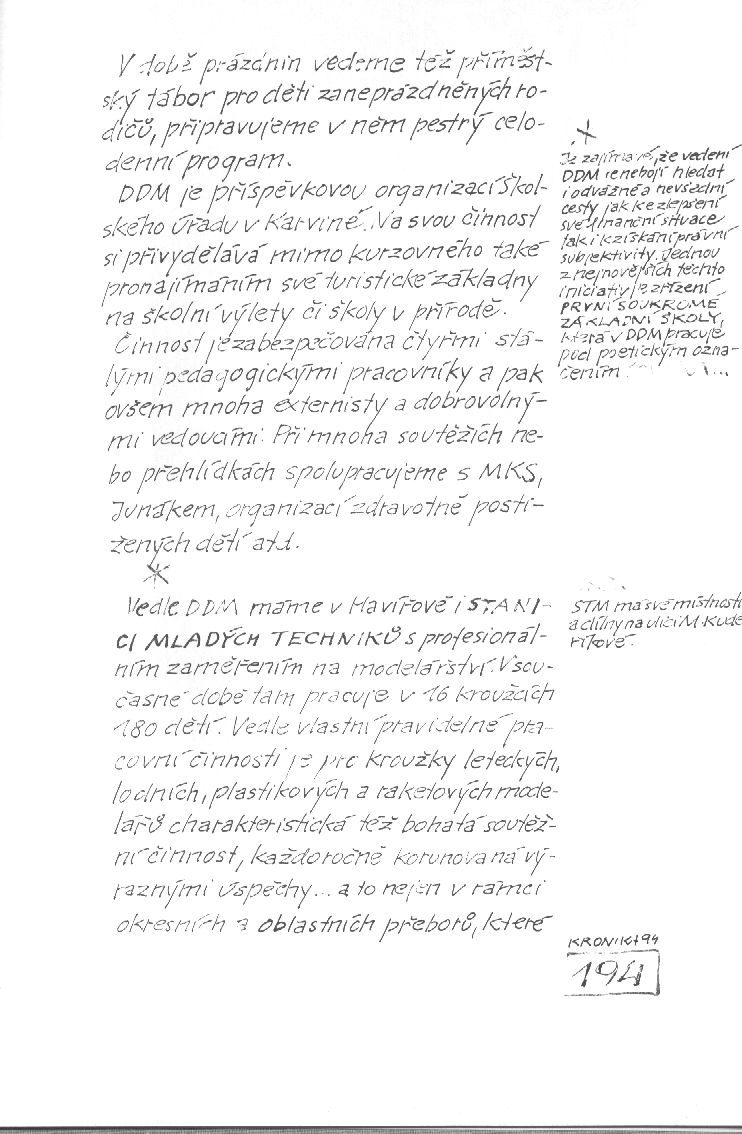 V době prázdnin vedeme též příměst-
ský tábor pro děti zaneprázdněných ro-
dičů, připravujeme v něm pestrý celo-
denní program.
DDM je příspěvkovou organizací Škol-
ského úřadu v Karviné. Na svou činnost
si přivydělává mimo kurzovného také
pronajímáním své turistické základny
na školní výlety či školy v přírodě.
Činnost je zabezpečována čtyřmi stá-
lými pedagogickými pracovníky a pak
ovšem mnoha externisty a dobrovolný-
mi vedoucími. Při mnoha soutěžích ne-
bo přehlídkách spolupracujeme s MKS,
Junákem, organizací zdravotně posti-
žených dětí atd.
Vedle DDM máme v Havířově i STANI-
CI MLADÝCH TECHNIKŮ s profesionál-
ním zaměřením na modelářství. V sou-
časné době tam pracuje v 16 kroužcích
180 dětí. Vedle vlastní pravidelné pra-
covní činnosti je pro kroužky leteckých,
lodních, plastikových a raketových mode-
lářů charakteristická též bohatá soutěž-
ní činnost, každoročně korunovaná vý-
raznými úspěchy... a to nejen v rámci
okresních a oblastních přeborů, které
Je zajímavé, že vedení
DDM se nebojí hledat
i odvážné a nevšední
cesty jak ke zlepšení
své finanční situace
tak i k získání právní
subjektivity. Jednou
z nejnovějších těchto
iniciativ je zřízení
PRVNÍ SOUKROMÉ
ZÁKLADNÍ ŠKOLY,
která v DDM pracuje
pod poetickým ozna-
čením
STM má své místnosti
a dílny na ulici M. Kude
říkové.
KRONIKA 94
194